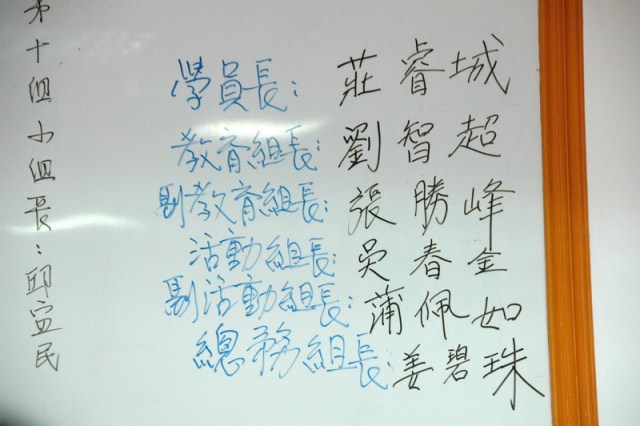 第十組小組長：邱宜民
學員長：莊睿城
教育組長：劉智超
副教育組長：張勝峰
活動組長：吳春金
副活動組長：蒲佩如
總務組長：姜碧珠